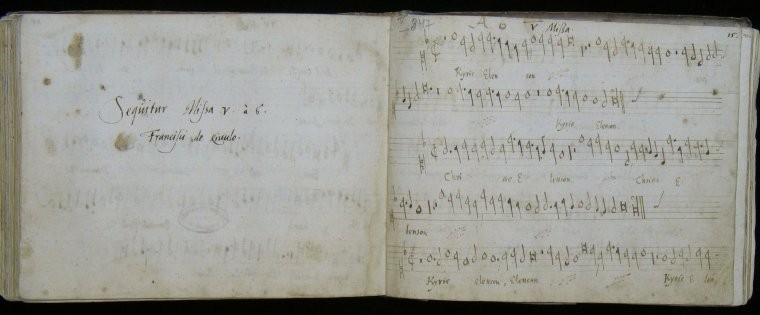 Sequitur Missa V. à 6.
Francisci de Riuulo.
847
A 6 V Missa
15.
Kyrie Eleison
Kyrie Eleison
Christe Eleison Christe E
leison
Kyrie eleison, Eleison Kyrie E lei